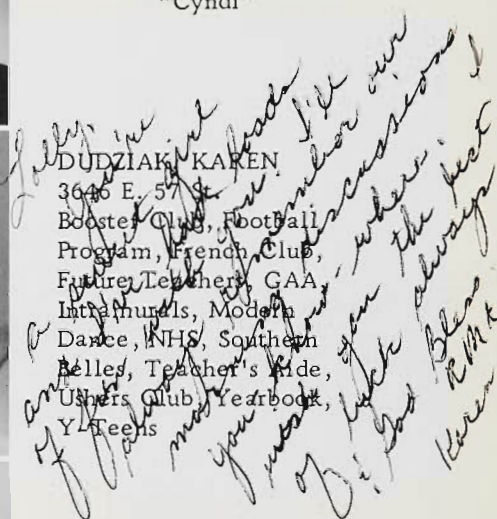 "Cyndi"
DUDZIAK, KAREN
3646 E. 57 St.
Booster Club, Football
Program, French Club,
Future Teachers, GAA,
Intramurals, Modern
Dance, NHS, Southern
Belles, Teacher's Aide,
Ushers Club, Yearbook,
Y-Teens
a sweet girl
and I've had loads
of fun with you. I'll
always remember our
morning discussions
you know where. I
wish you the best
of luck always
& God Bless
R.M.A
Karen